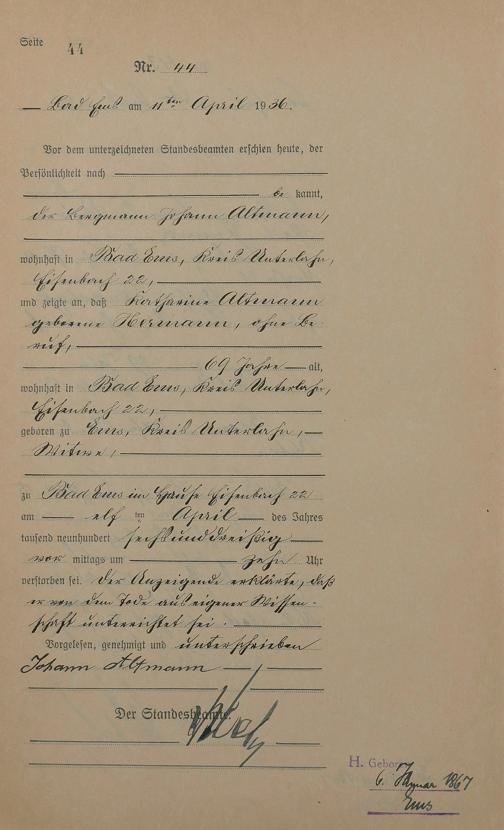 Seite 44
Nr. 44
Bad Ems am 11ten April 1936.
Vor dem unterzeichneten Standesbeamten erschien heute, der
Persönlichkeit nach
be kannt,
der Bergmann Johann Altmann,
wohnhaft in Bad Ems, Kreis Unterlahn,
Eisenbach 22,
und zeigte an, daß Katharine Altmann
geborene Hermann, ohne Be-
ruf,
69 Jahre alt,
wohnhaft in Bad Ems, Kreis Unterlahn,
Eisenbach 22,
geboren zu Ems, Kreis Unterlahn,
Witwe,
zu Bad Ems im Hause Eisenbach 22
am elf ten April des Jahres
tausend neunhundert sechsunddreißig
vor mittags um zehn Uhr
verstorben sei. Der Anzeigende erklärte, daß
er von dem Tode aus eigener Wissen-
schaft unterrichtet sei.
Vorgelesen, genehmigt und unterschrieben
Johann Altmann
Der Standesbeamte.
H. Gebor
6. Januar 1867
Ems